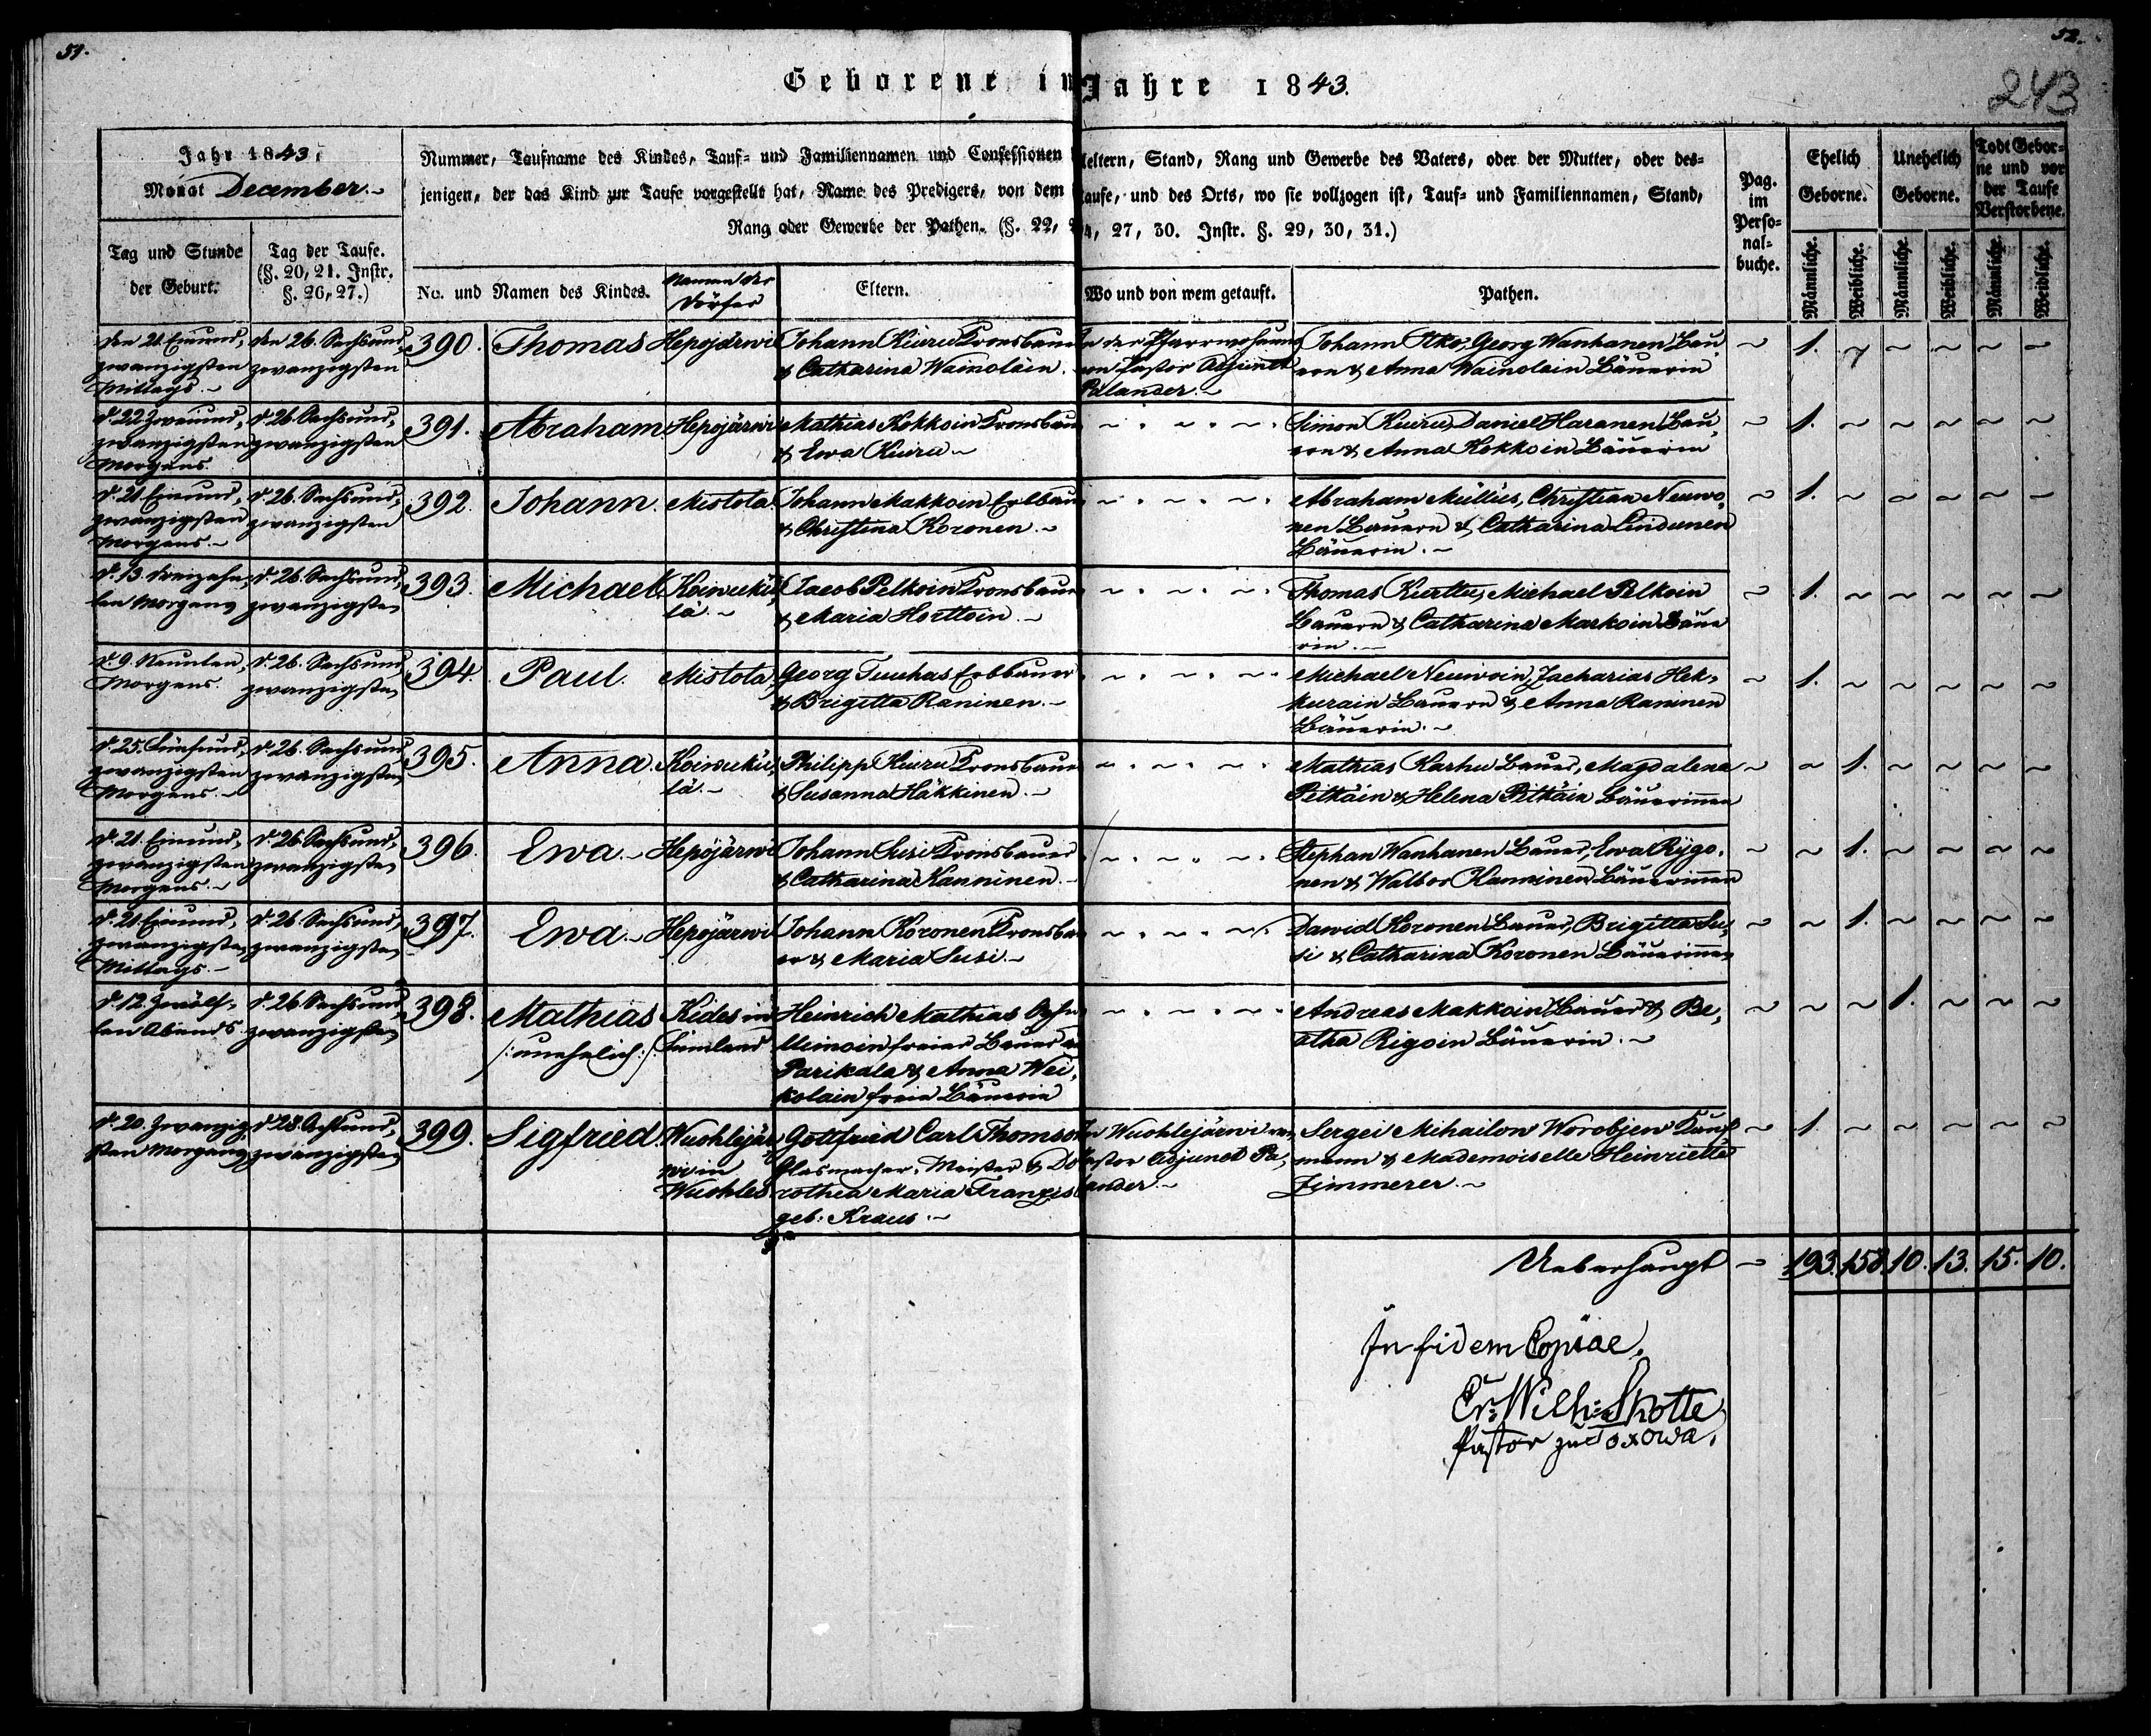 51.
52.
Geborene im Jahre 1843.
243
Jahr 1843,
Monat December.
Tag und Stunde
der Geburt.
Tag der Taufe.
(§. 20, 21. Instr.
§. 26, 27.)
Nummer, Taufname des Kindes, Tauf- und Familiennamen und Confessionen
jenigen, der das Kind zur Taufe vorgestellt hat, Name des Predigers, von dem
Rang oder Gewerbe der Pathen. (§. 22,
No. und Namen des Kindes.
Namen der
Dörfer
Eltern.
eltern, Stand, Rang und Gewerbe des Vaters, oder der Mutter, oder des-
Taufe, und des Orts, wo sie vollzogen ist, Tauf- und Familiennamen, Stand,
24, 27, 30. Instr. §. 29, 30, 31.)
Wo und von wem getauft.
Pathen.
Pag.
im
Perso-
nal-
buche.
Ehelich
Geborne.
Unehelich
Geborne.
Todt Gebor-
ne und vor
der Taufe
Verstorbene.
Männliche.
Weibliche.
Männliche.
Weibliche.
Männliche.
Weibliche.
den 21. Einund-
zwanzigsten
Mittags.
den 26. Sechsund-
zwanzigsten
390. Thomas Hepojärwi
Johann Kiuru Kronsbauer
& Catharina Wainolain.
In der Pfarrwohnung
von Pastor Adjunct
Palander.
Johann Itko, Georg Wanhanen Bau-
ern & Anna Wainolain Bäuerin
1.
d. 22. Zweiund-
zwanzigsten
Morgens.
d. 26. Sechsund-
zwanzigsten
391. Abraham Hepojärwi
Mathias Kokkoin Kronsbauer
& Ewa Kiuru
Simon Kiuru, Daniel Haranen Bau-
ern & Anna Kokkoin Bäuerin
1.
d. 21. Einund-
zwanzigsten
Morgens.
d. 26. Sechsund-
zwanzigsten
392. Johann. Mistola.
Johann Makkoin Erbbauer
& Christina Koronen.
Abraham Müllüs, Christian Neuwo-
nen Bauern & Catharina Lindunen
Bäuerin.
1.
d. 13. Dreizehn-
ten Morgens
d. 26. Sechsund-
zwanzigsten
393. Michael. Koiwukü-
lä.
Jacob Pelkoin Kronsbauer
& Maria Horttoin.
Thomas Kurttu, Michael Pelkoin
Bauern & Catharina Markoin Bäue-
rin.
1.
d. 9. Neunten
Morgens.
d. 26. Sechsund-
zwanzigsten
394. Paul. Mistola
Georg Tuuhas Erbbauer
& Brigitta Raninen.
Michael Neuwoin, Zacharias Hek-
kurain Bauern & Anna Raninen
Bäuerin.
1.
d. 25. Fünfund-
zwanzigsten
Morgens.
d. 26. Sechsund-
zwanzigsten
395. Anna. Koiwukü-
lä.
Philipp Kiuru Kronsbauer
& Susanna Häkkinen.
Mathias Karhu Bauer, Magdalena
Pitkäin & Helena Pitkäin Bäuerinnen
1.
d. 21. Einund-
zwanzigsten
Morgens.
d. 26. Sechsund-
zwanzigsten
396. Ewa. Hepojärwi
Johann Susi Kronsbauer
& Catharina Kanninen.
Stephan Wanhanen Bauer, Ewa Rygo-
nen & Walbor Kanninen Bäuerinnen
1.
d. 21. Einund-
zwanzigsten
Mittags.
d. 26. Sechsund-
zwanzigsten
397. Ewa. Hepojärwi
Johann Koronen Kronsbau-
er & Maria Susi.
Dawid Koronen Bauer, Brigitta Su-
si & Catharina Koronen Bäuerinnen
1.
d. 12. Zwölf-
ten Abends.
d. 26. Sechsund-
zwanzigsten
398. Mathias
/:unehelich:/.
Kides in
Finnland
Heinrich Mathias Sohn
Mimoin freier Bauer
Parikala & Anna Wei-
kolain freie Bäuerin
Andreas Makkoin Bauer & Be-
atha Rigoin Bäuerin.
1.
d. 20. Zwanzig-
sten Morgens
d. 28. Achtund-
zwanzigsten
399. Sigfried. Wuohlejär-
wi in
Wuohles
Gottfried Carl Thomson
Glasmacher-Meister & Do-
rothea Maria Franzis
geb. Kraus.
In Wuohlejärwi von
Pastor Adjunct Pa-
lander.
Sergei Mihailow Worobjew Kauf-
mann & Mademoiselle Heinriette
Zimmerer.
1.
Ueberhaupt 193. 158. 10. 13. 15. 10.
In fidem Copiae,
Er: Wilh: Skotte
Pastor zu Toxowa.